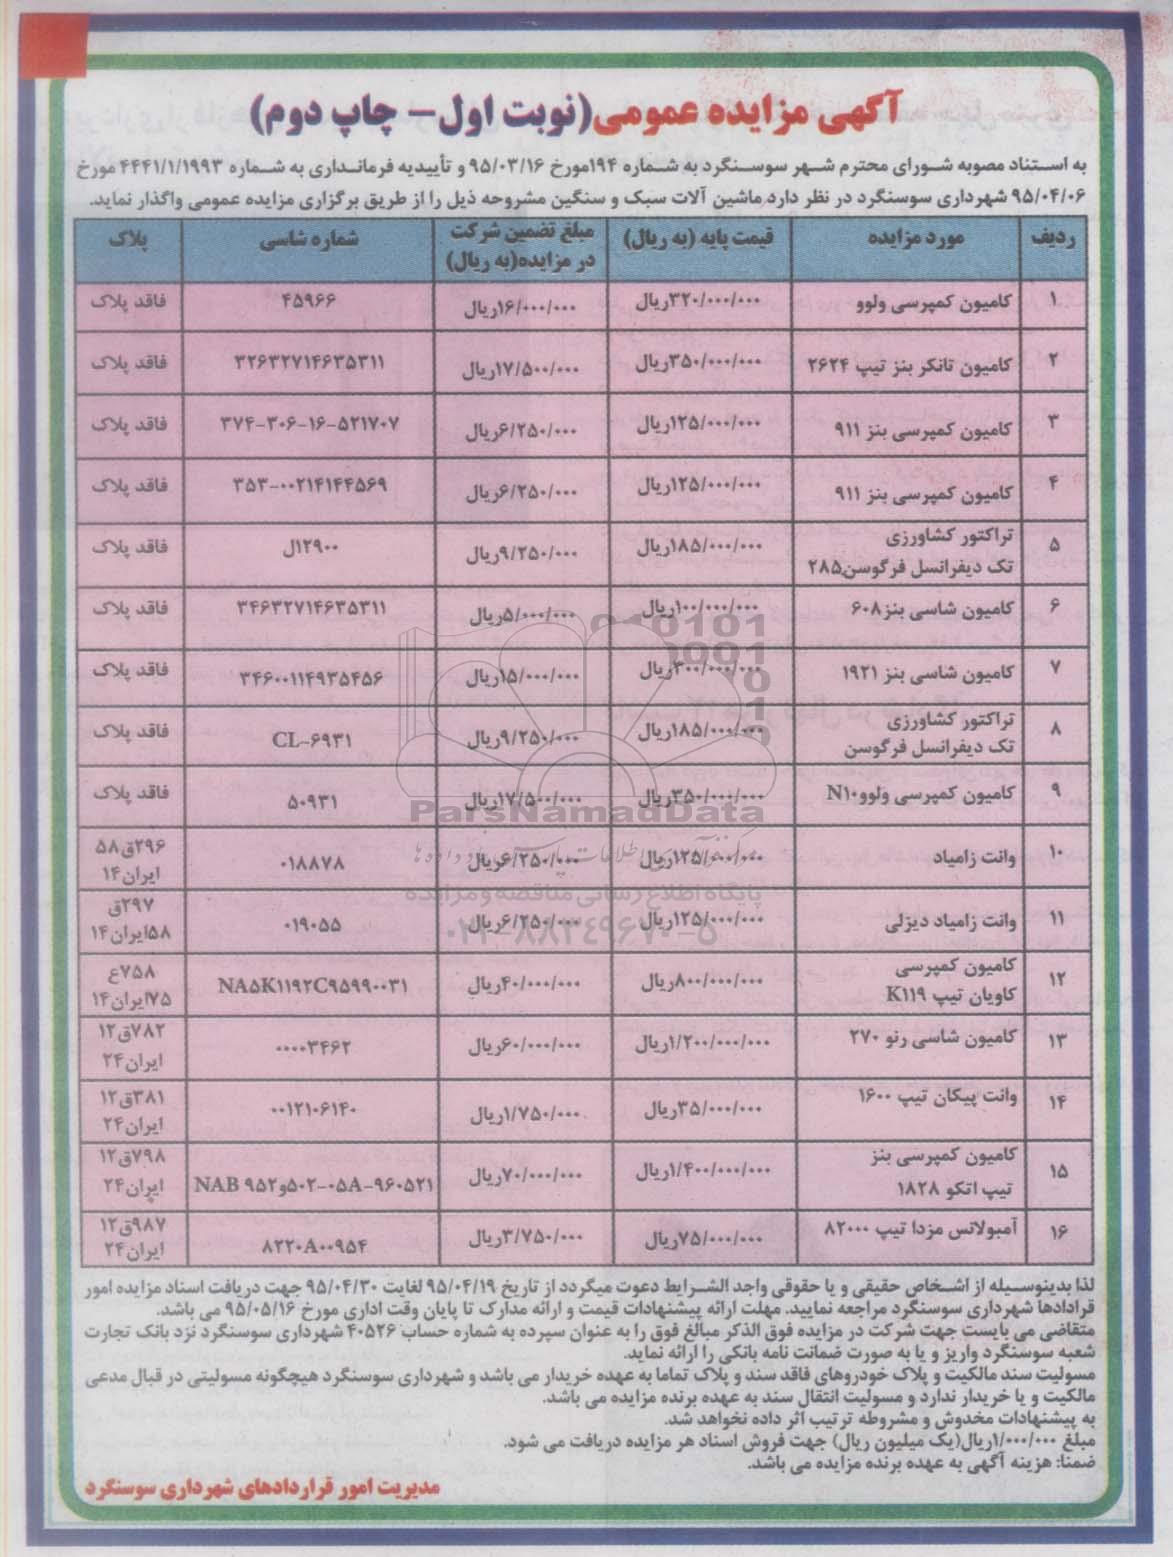 آگهی مزایده عمومی(نوبت اول– چاپ دوم)
به استناد مصوبه شورای محترم شهر سوسنگرد به شماره ۱۹۴مورخ ۹۵/۰۳/۱۶ و تأییدیه فرمانداری به شماره ۴۴۴۱/۱/۱۹۹۳ مورخ
۹۵/۰۴/۰۶ شهرداری سوسنگرد در نظر دارد ماشین آلات سبک و سنگین مشروحه ذیل را از طریق برگزاری مزایده عمومی واگذار نماید.
ردیف مورد مزایده قیمت پایه (به ریال) مبلغ تضمین شرکت در مزایده(به ریال) شماره شاسی پلاک
۱ کامیون کمپرسی ولوو ۳۲۰/۰۰۰/۰۰۰ریال ۱۶/۰۰۰/۰۰۰ریال ۴۵۹۶۶ فاقد پلاک
۲ کامیون تانکر بنز تیپ ۲۶۲۴ ۳۵۰/۰۰۰/۰۰۰ریال ۱۷/۵۰۰/۰۰۰ریال ۳۲۶۳۲۷۱۴۶۳۵۳۱۱ فاقد پلاک
۳ کامیون کمپرسی بنز ۹۱۱ ۱۲۵/۰۰۰/۰۰۰ریال ۶/۲۵۰/۰۰۰ریال ۳۷۴-۳۰۶-۱۶-۵۲۱۷۰۷ فاقد پلاک
۴ کامیون کمپرسی بنز ۹۱۱ ۱۲۵/۰۰۰/۰۰۰ریال ۶/۲۵۰/۰۰۰ریال ۳۵۳-۰۰۲۱۴۱۴۴۵۶۹ فاقد پلاک
۵ تراکتور کشاورزی تک دیفرانسل فرگوسن۲۸۵ ۱۸۵/۰۰۰/۰۰۰ریال ۹/۲۵۰/۰۰۰ریال ۱۲۹۰۰ل فاقد پلاک
۶ کامیون شاسی بنز۶۰۸ ۱۰۰/۰۰۰/۰۰۰ریال ۵/۰۰۰/۰۰۰ریال ۳۴۶۳۲۷۱۴۶۳۵۳۱۱ فاقد پلاک
۷ کامیون شاسی بنز ۱۹۲۱ ۳۰۰/۰۰۰/۰۰۰ریال ۱۵/۰۰۰/۰۰۰ریال ۳۴۶۰۰۱۱۴۹۳۵۴۵۶ فاقد پلاک
۸ تراکتور کشاورزی تک دیفرانسل فرگوسن ۱۸۵/۰۰۰/۰۰۰ریال ۹/۲۵۰/۰۰۰ریال CL-۶۹۳۱ فاقد پلاک
۹ کامیون کمپرسی ولووN۱۰ ۳۵۰/۰۰۰/۰۰۰ریال ۱۷/۵۰۰/۰۰۰ریال ۵۰۹۳۱ فاقد پلاک
۱۰ وانت زامیاد ۱۲۵/۰۰۰/۰۰۰ریال ۶/۲۵۰/۰۰۰ریال ۰۱۸۸۷۸ ۲۹۶ق۵۸ ایران۱۴
۱۱ وانت زامیاد دیزلی ۱۲۵/۰۰۰/۰۰۰ریال ۶/۲۵۰/۰۰۰ریال ۰۱۹۰۵۵ ۲۹۷ق ۵۸ایران۱۴
۱۲ کامیون کمپرسی کاویان تیپ K۱۱۹ ۸۰۰/۰۰۰/۰۰۰ریال ۴۰/۰۰۰/۰۰۰ریال NA۵K۱۱۹۲C۹۵۹۹۰۰۳۱ ۷۵۸ع ۷۵ایران۱۴
۱۳ کامیون شاسی رنو ۲۷۰ ۱/۲۰۰/۰۰۰/۰۰۰ریال ۶۰/۰۰۰/۰۰۰ریال ۰۰۰۰۳۴۶۲ ۷۸۲ق۱۲ ایران۲۴
۱۴ وانت پیکان تیپ ۱۶۰۰ ۳۵/۰۰۰/۰۰۰ریال ۱/۷۵۰/۰۰۰ریال ۰۰۱۲۱۰۶۱۴۰ ۳۸۱ق۱۲ ایران۲۴
۱۵ کامیون کمپرسی بنز تیپ اتکو ۱۸۲۸ ۱/۴۰۰/۰۰۰/۰۰۰ریال ۷۰/۰۰۰/۰۰۰ریال NAB ۹۵۲و۵۰۲-۰۵A-۹۶۰۵۲۱ ۷۹۸ق۱۲ ایران۲۴
۱۶ آمبولانس مزدا تیپ ۸۲۰۰۰ ۷۵/۰۰۰/۰۰۰ریال ۳/۷۵۰/۰۰۰ریال ۸۲۲۰A۰۰۹۵۴ ۹۸۷ق۱۲ ایران۲۴
ParsNamadData
پایگاه اطلاع رسانی مناقصه و مزایده
۰۲۱-۸۸۳۴۹۶۷۰-۵
لذا بدینوسیله از اشخاص حقیقی و یا حقوقی واجد الشرایط دعوت میگردد از تاریخ ۹۵/۰۴/۱۹ لغایت ۹۵/۰۴/۳۰ جهت دریافت اسناد مزایده امور
قرادادها شهرداری سوسنگرد مراجعه نمایید. مهلت ارائه پیشنهادات قیمت و ارائه مدارک تا پایان وقت اداری مورخ ۹۵/۰۵/۱۶ می باشد.
متقاضی می بایست جهت شرکت در مزایده فوق الذکر مبالغ فوق را به عنوان سپرده به شماره حساب ۴۰۵۲۶ شهرداری سوسنگرد نزد بانک تجارت
شعبه سوسنگرد واریز و یا به صورت ضمانت نامه بانکی را ارائه نماید.
مسولیت سند مالکیت و پلاک خودروهای فاقد سند و پلاک تماما به عهده خریدار می باشد و شهرداری سوسنگرد هیچگونه مسولیتی در قبال مدعی
مالکیت و یا خریدار ندارد و مسولیت انتقال سند به عهده برنده مزایده می باشد.
به پیشنهادات مخدوش و مشروطه ترتیب اثر داده نخواهد شد.
مبلغ ۱/۰۰۰/۰۰۰ریال(یک میلیون ریال) جهت فروش اسناد هر مزایده دریافت می شود.
ضمنا: هزینه آگهی به عهده برنده مزایده می باشد.
مدیریت امور قراردادهای شهرداری سوسنگرد